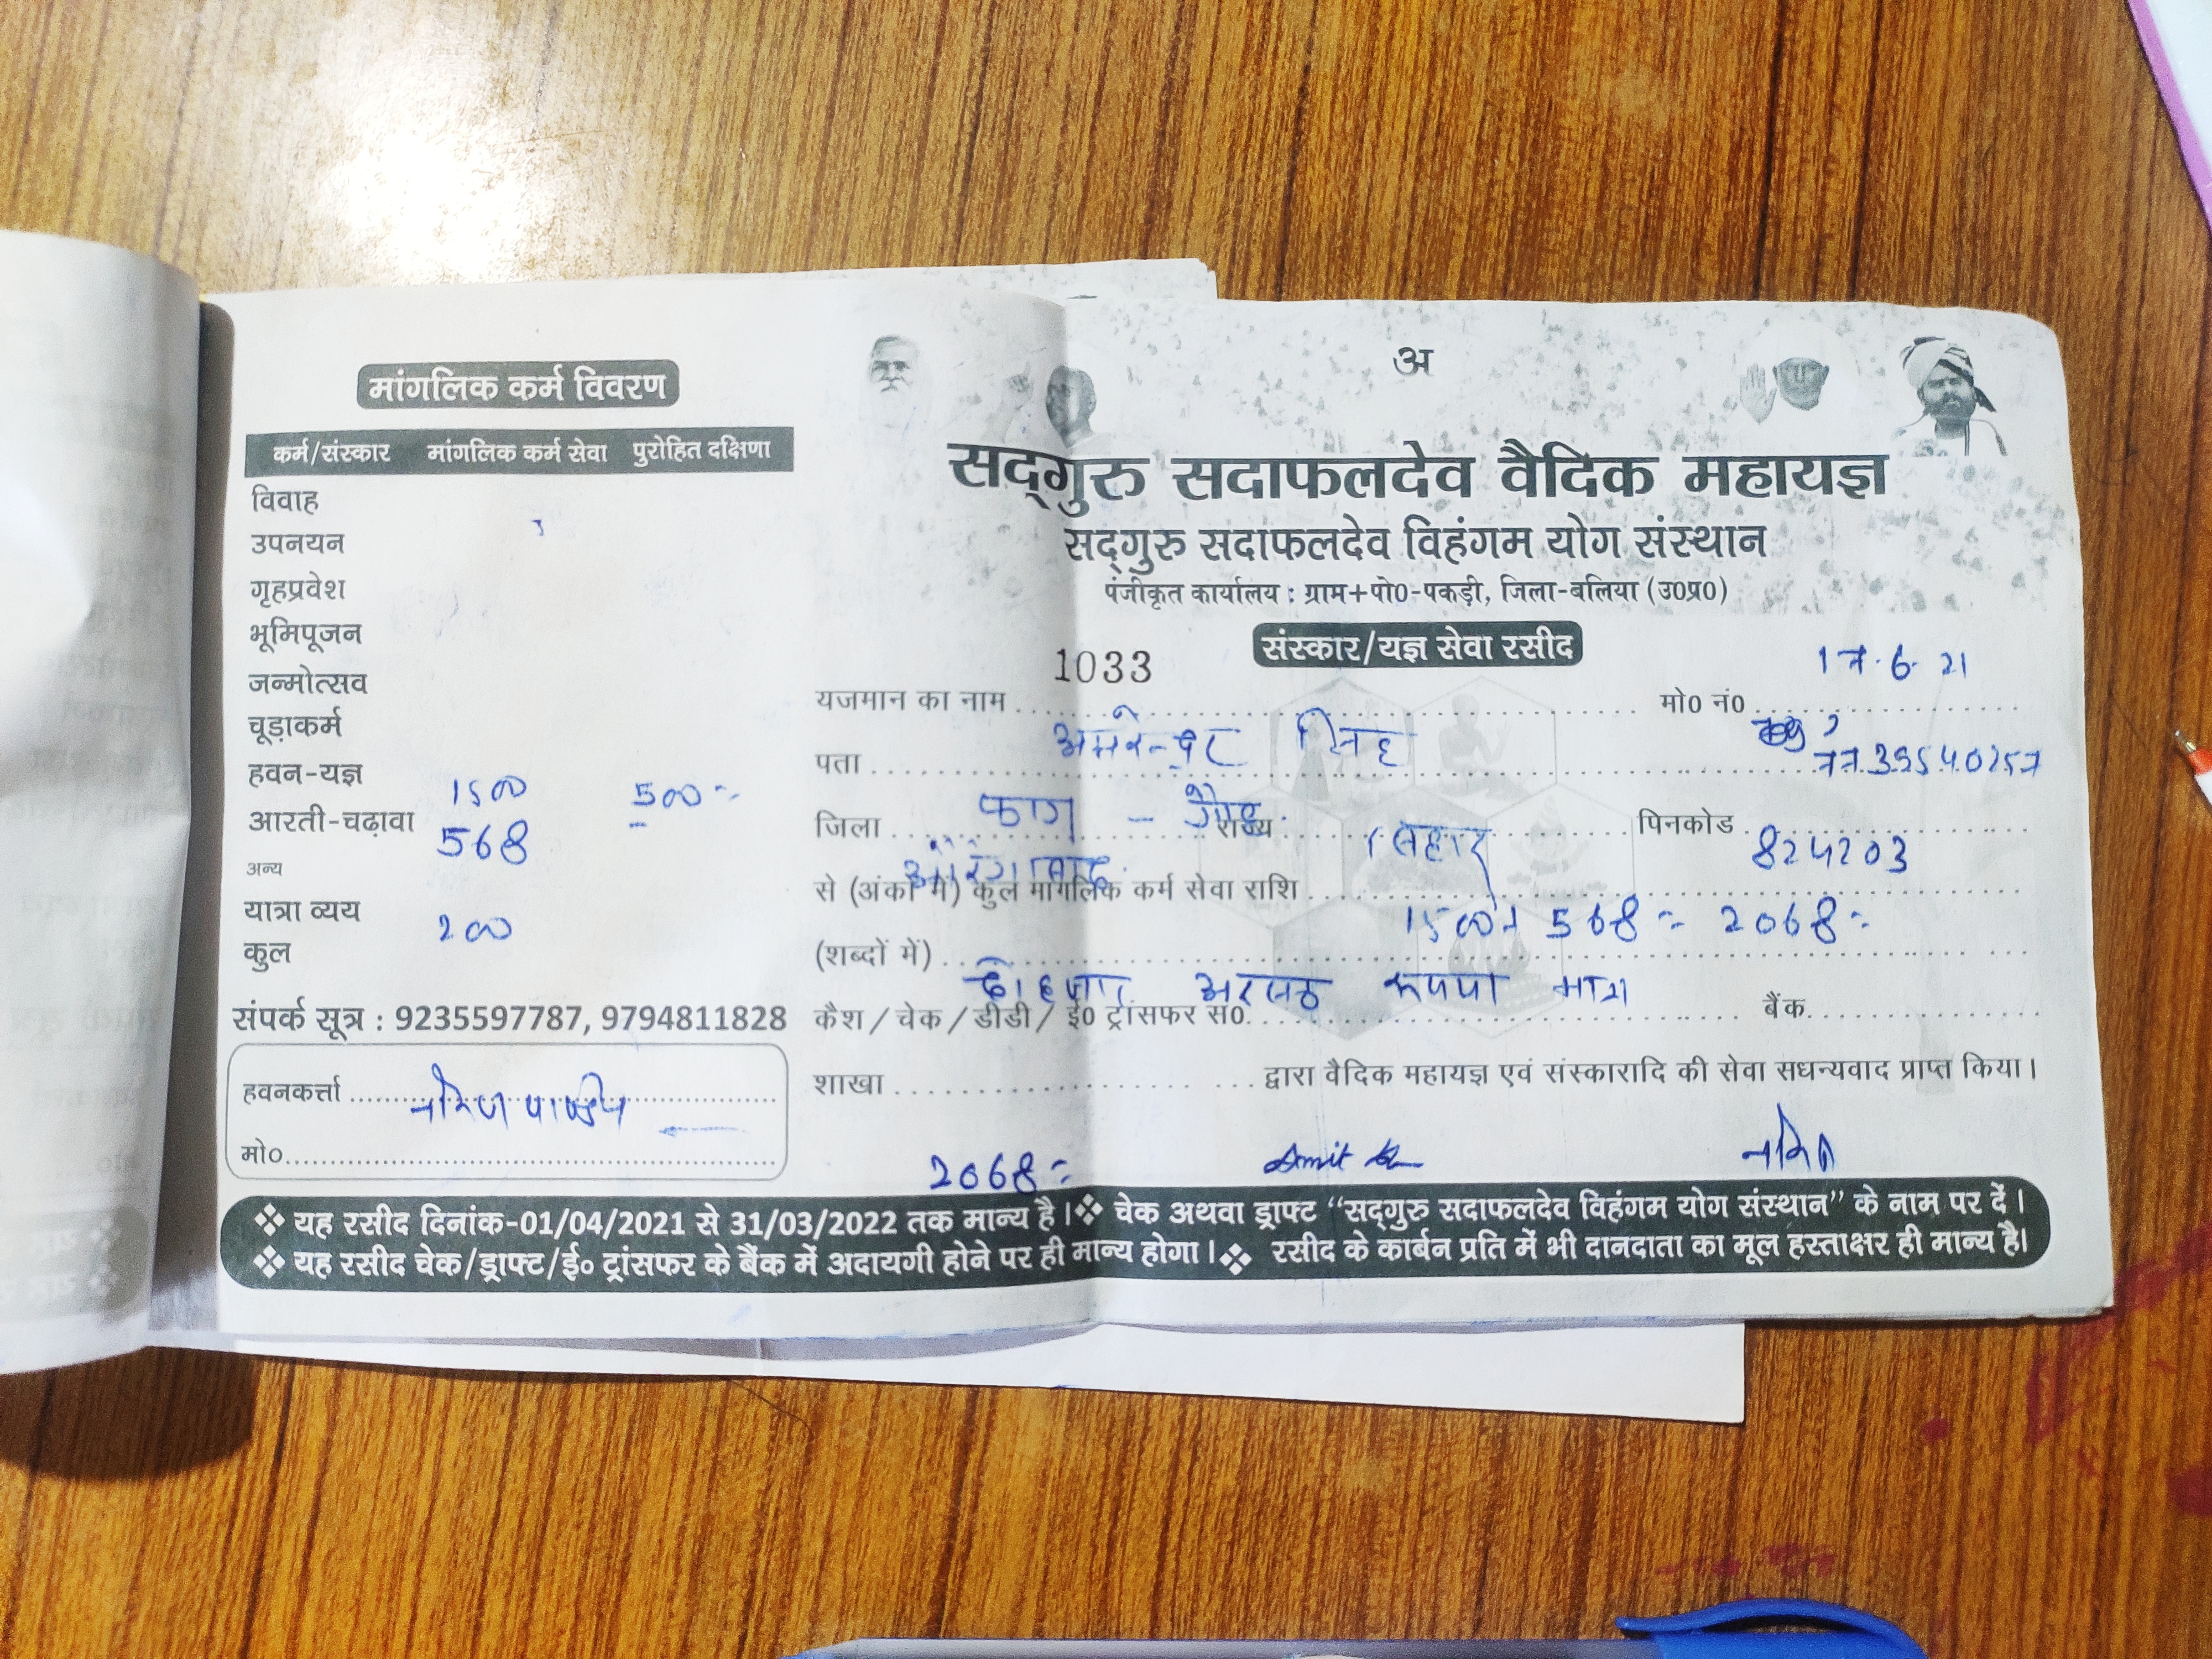 मांगलिक कर्म विवरण
कर्म/संस्कार मांगलिक कर्म सेवा पुरोहित दक्षिणा
विवाह
उपनयन
गृहप्रवेश
भूमिपूजन
जन्मोत्सव
चूड़ाकर्म
हवन-यज्ञ 1500 500
आरती-चढ़ावा 568
अन्य
यात्रा व्यय 200
कुल
संपर्क सूत्र : 9235597787, 9794811828
हवनकर्त्ता
मो०
अ
सद्गुरु सदाफलदेव वैदिक महायज्ञ
सद्गुरु सदाफलदेव विहंगम योग संस्थान
पंजीकृत कार्यालय : ग्राम+पो0-पकड़ी, जिला-बलिया (उ0प्र0)
संस्कार/यज्ञ सेवा रसीद
1033 17.6.21
यजमान का नाम सिंह मो0 नं0
पता
जिला राज्य पिनकोड 824203
से (अंकों में) कुल मांगलिक कर्म सेवा राशि 1500+ 568 = 2068
(शब्दों में)
कैश / चेक / डीडी / ई0 ट्रांसफर सं0 बैंक
शाखा द्वारा वैदिक महायज्ञ एवं संस्कारादि की सेवा सधन्यवाद प्राप्त किया।
2068 Amit
❖ यह रसीद दिनांक-01/04/2021 से 31/03/2022 तक मान्य है। ❖ चेक अथवा ड्राफ्ट “सद्गुरु सदाफलदेव विहंगम योग संस्थान” के नाम पर दें।
❖ यह रसीद चेक/ड्राफ्ट/ई० ट्रांसफर के बैंक में अदायगी होने पर ही मान्य होगा। ❖ रसीद के कार्बन प्रति में भी दानदाता का मूल हस्ताक्षर ही मान्य है।